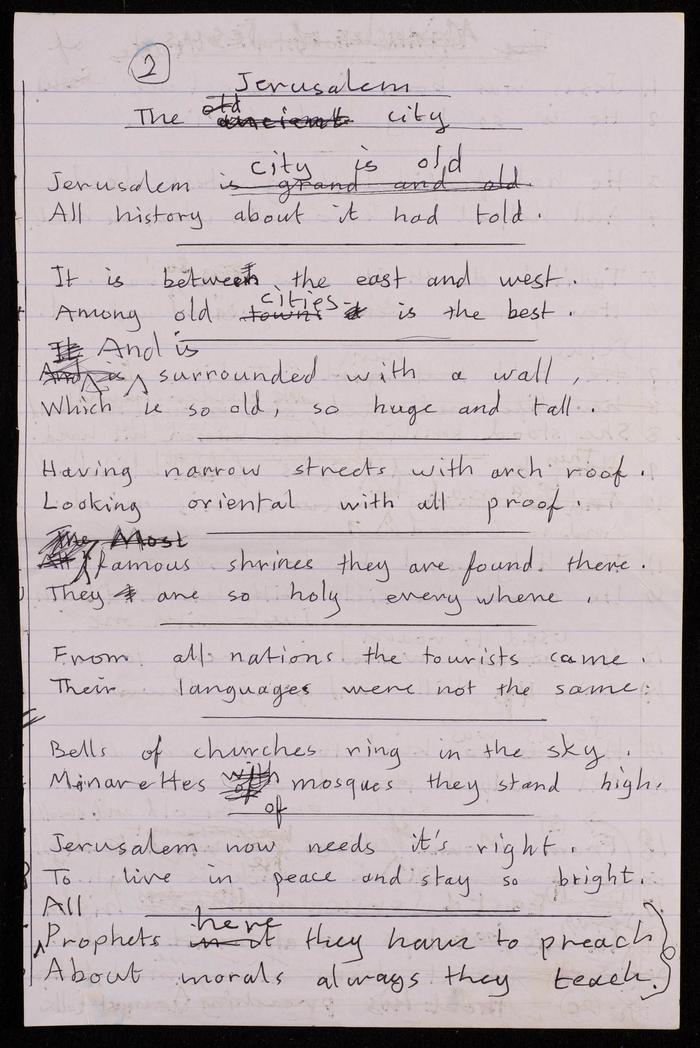 2
Jerusalem
The old ancient city
city is old
Jerusalem is grand and old
All history about it had told.
It is between the east and west.
cities
Among old towns is the best.
It And is
And is surrounded with a wall,
Which is so old, so huge and tall.
Having narrow streets with arch roof.
Looking oriental with all proof.
The Most
All famous shrines they are found there.
They are so holy every where.
From all nations the tourists came.
Their languages were not the same.
Bells of churches ring in the sky.
Minarettes with mosques they stand high.
of
Jerusalem now needs it's right.
To live in peace and stay so bright.
All
here
Prophets they have to preach
About morals always they teach.